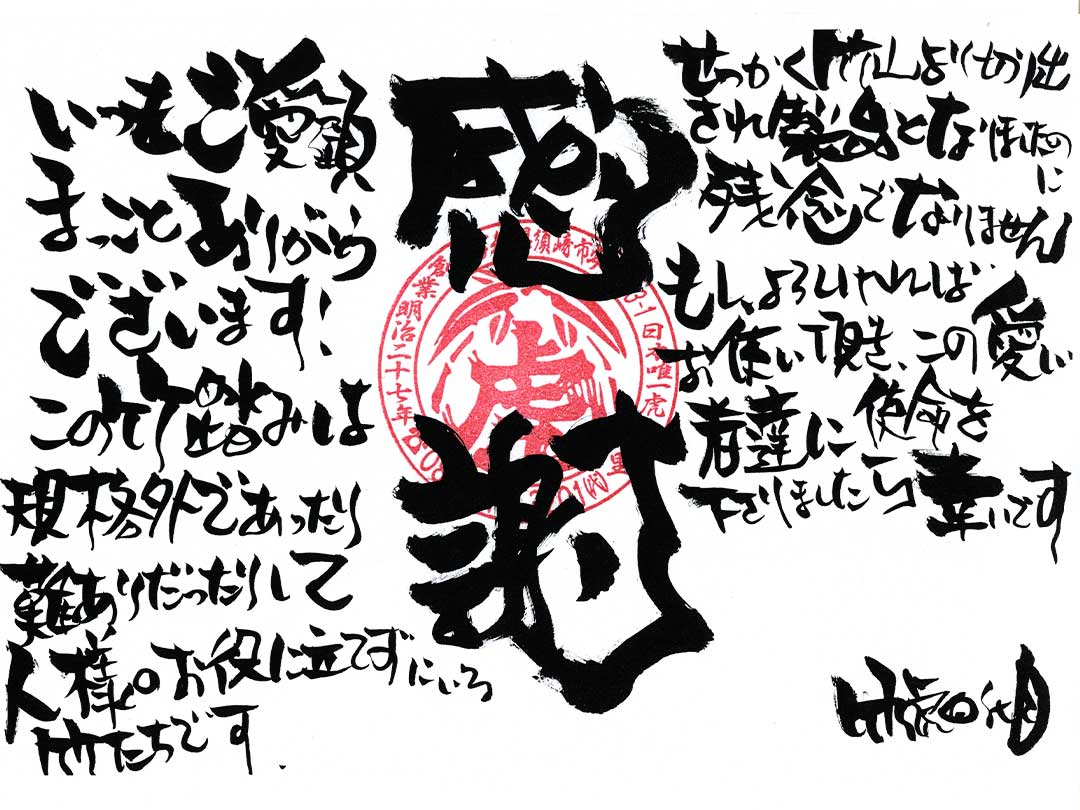 いつもご愛顧
まっことありがとう
ございます!
この竹踏みは
規格外であったり
難ありだったりして
人様のお役に立てずにいる
竹たちです.
感謝
須崎市安
日本唯一虎
創業明治二十七年
虎
せっかく竹山より切り出
され製品となりましたのに
残念でなりません
もし、よろしければ
お使い頂き、この愛い
者達に使命を
下さりましたら幸いです
竹虎四代目